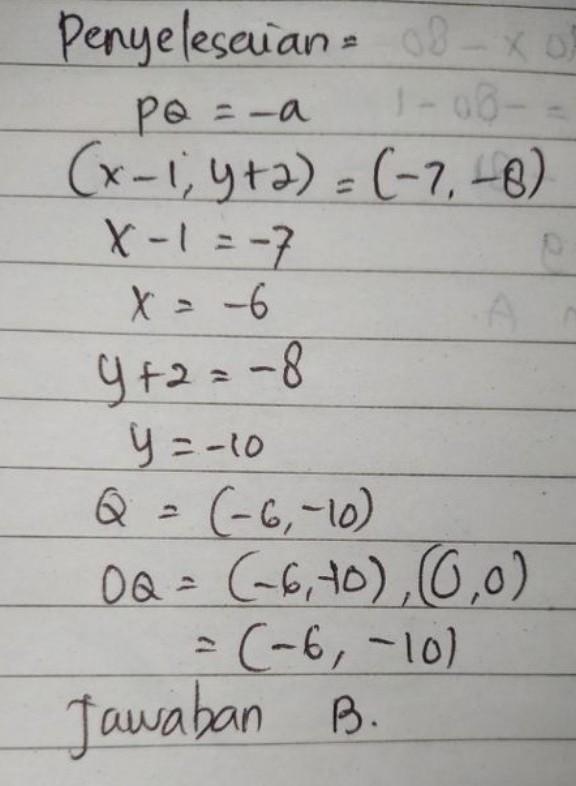 Penyelesaian =
PQ = -a
(x-1, y+2) = (-7, -8)
x - 1 = -7
x = -6
y + 2 = -8
y = -10
Q = (-6, -10)
OQ = (-6, -10), (0,0)
= (-6, -10)
Jawaban B.